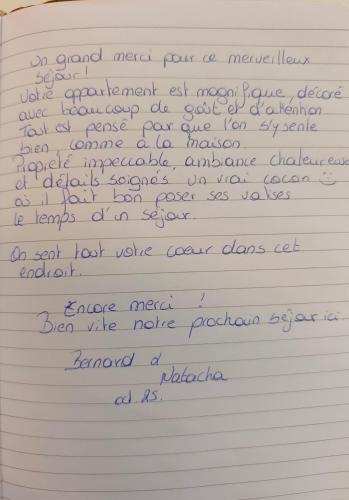 Un grand merci pour ce merveilleux
séjour!
Votre appartement est magnifique, décoré
avec beaucoup de goût et d'attention.
Tout est pensé par que l'on s'y sente
bien, comme à la maison.
Propreté impeccable, ambiance chaleureuse
et détails soignés. Un vrai cocon ☺
où il fait bon poser ses valises
le temps d'un séjour.
On sent tout votre coeur dans cet
endroit.
Encore merci !
Bien vite notre prochain séjour ici.
Bernard &
Natacha
oct 25.